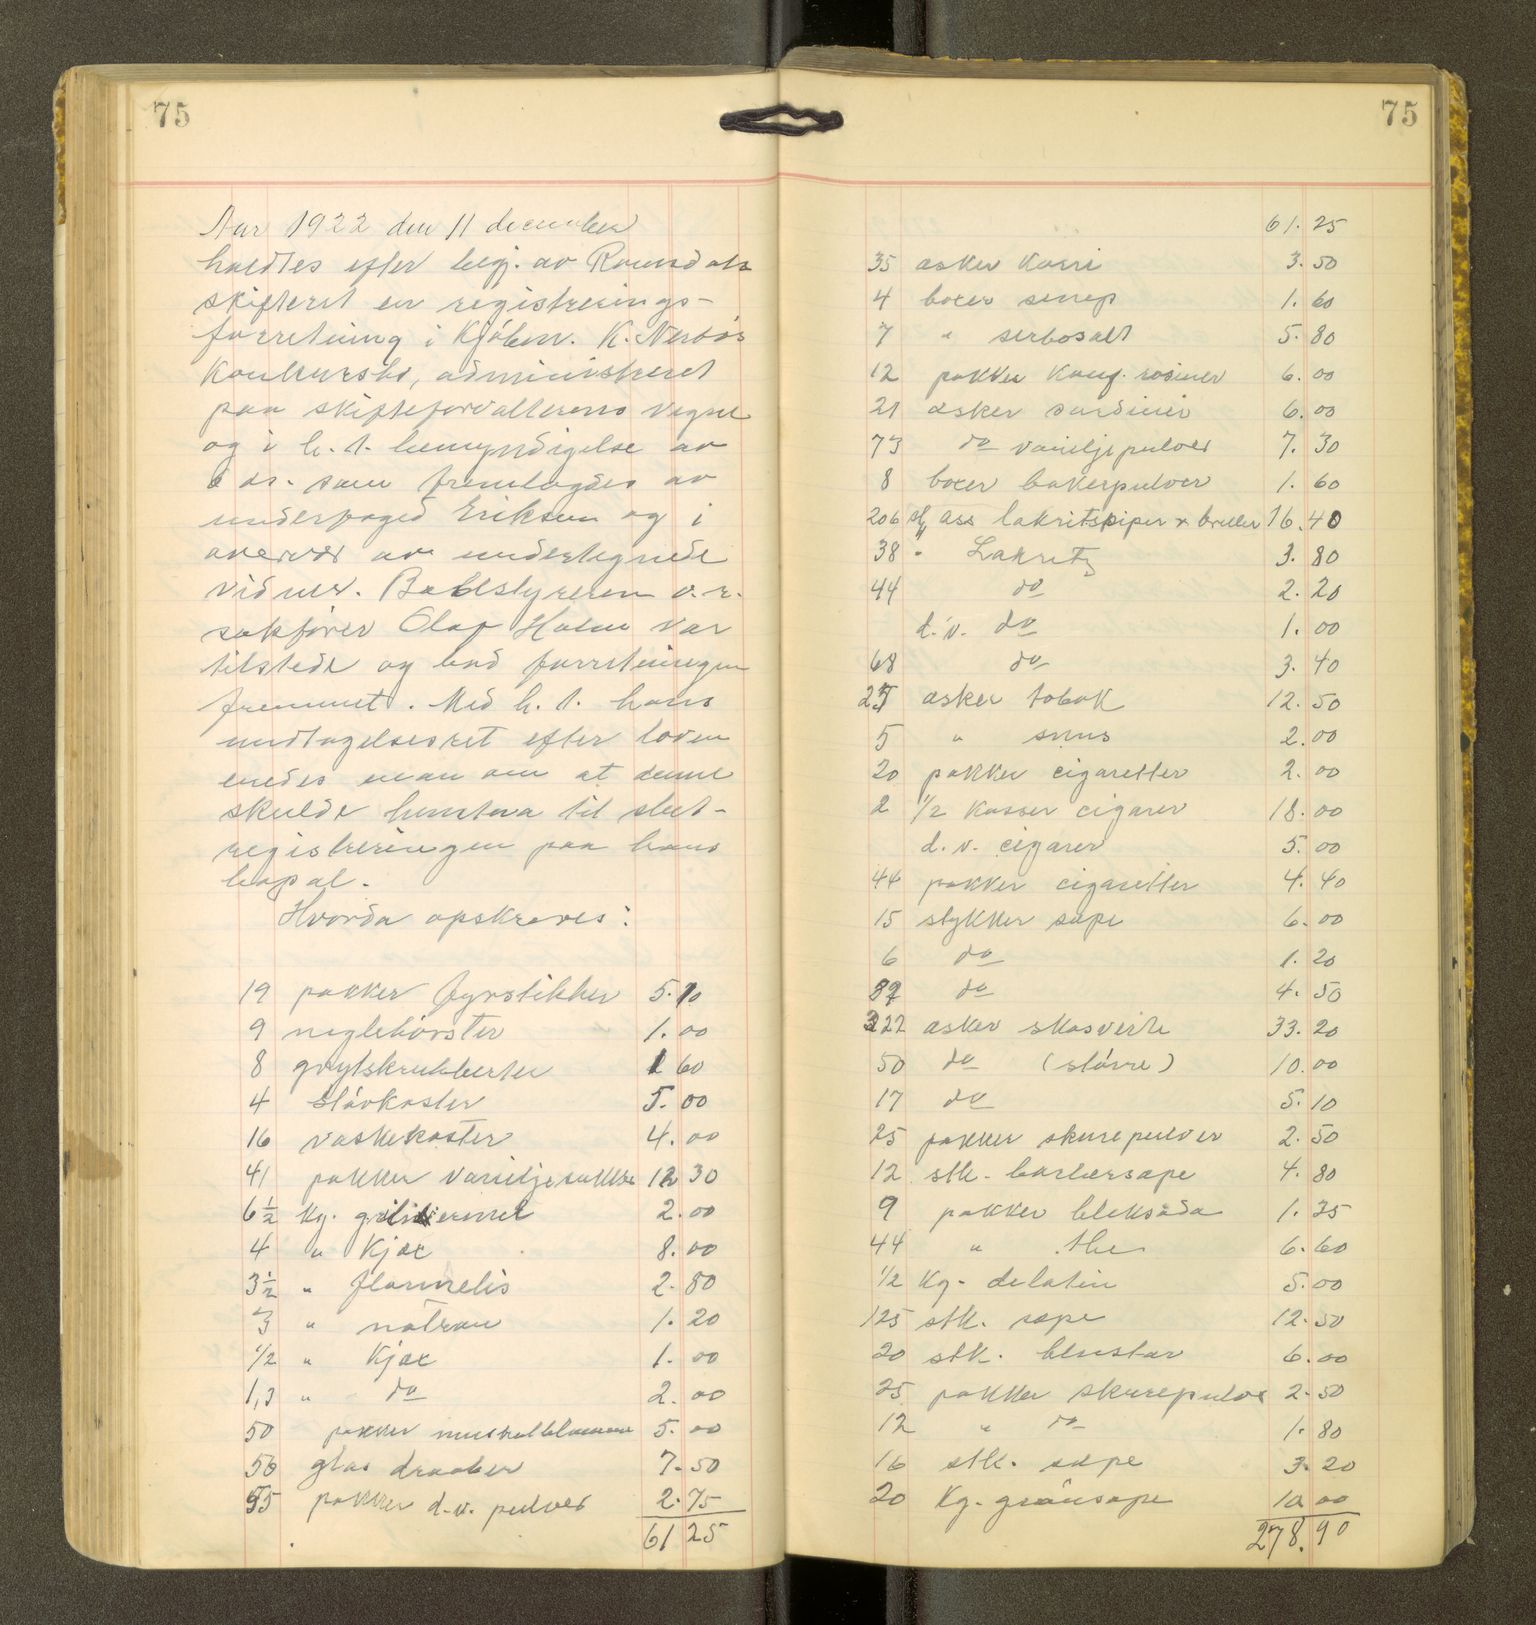 75
Aar 1922 den 11 december
holdtes efter begj. av Romsdals
skifteret en registrerings-
forretning i Kjøbm. K. Nerbøs
Konkursbo, administreret
paa skifteforvalterens vegne
og i h. t. bemyndigelse av
6 ds. som fremlagdes av
underfoged Eriksen og i
overvær av undertegnede
vidner. Bobestyreren o.r.
sakfører Olaf Holm var
tilstede og bad forretningen
fremmet. Med h. t. hans
undtagelsesret efter loven
enedes man om at denne
skulde henstaa til slut-
registreringen paa hans
bopæl.
Hvorda opskreves:
19 pakker fyrstikker 5.10
9 neglebørster 1.00
8 grytskrubberter 1 60
4 Støvkoster 5.00
16 vaskekoster 4.00
41 pakker vaniljesukker 12 30
6 1/2 kg. 2.00
4 " Kjæx 8.00
3 1/2 " flormelis 2.80
3 " natron 1.20
1/2 " Kjæx 1.00
1,3 " do 2.00
50 pakker muskatblomme 5.00
50 glas draaber 7.50
55 pakker d.v. pulver 2.75
61 25
75
61.25
35 æsker karri 3.50
4 boxer senep 1.60
7 " serbosalt 5.80
12 pakker kauf. rosiner 6.00
21 æsker sardiner 6.00
73 do vaniljepulver 7.30
8 boxer bakerpulver 1.60
206 st ass lakritspiper & briller 16.40
38 " Lakrits 3.80
44 do 2.20
d.v. do 1.00
68 do 3.40
25 æsker tobak 12.50
5 " snus 2.00
20 pakker cigaretter 2.00
2 1/2 kasser cigarer 18.00
d.v. cigarer 5.00
44 pakker cigaretter 4.40
15 stykker sæpe 6.00
6 do 1.20
do 4.50
322 æsker skosverte 33.20
50 do (større) 10.00
17 do 5.10
25 pakker skurepulver 2.50
12 stk. barbersæpe 4.80
9 pakker bleksoda 1.35
44 " the 6.60
1/2 Kg. delatin 5.00
125 stk. sæpe 12.50
20 stk. 6.00
25 pakker skurepulver 2.50
12 " do 1.80
16 stk. sæpe 3.20
20 Kg. grønsæpe 10 00
278.90